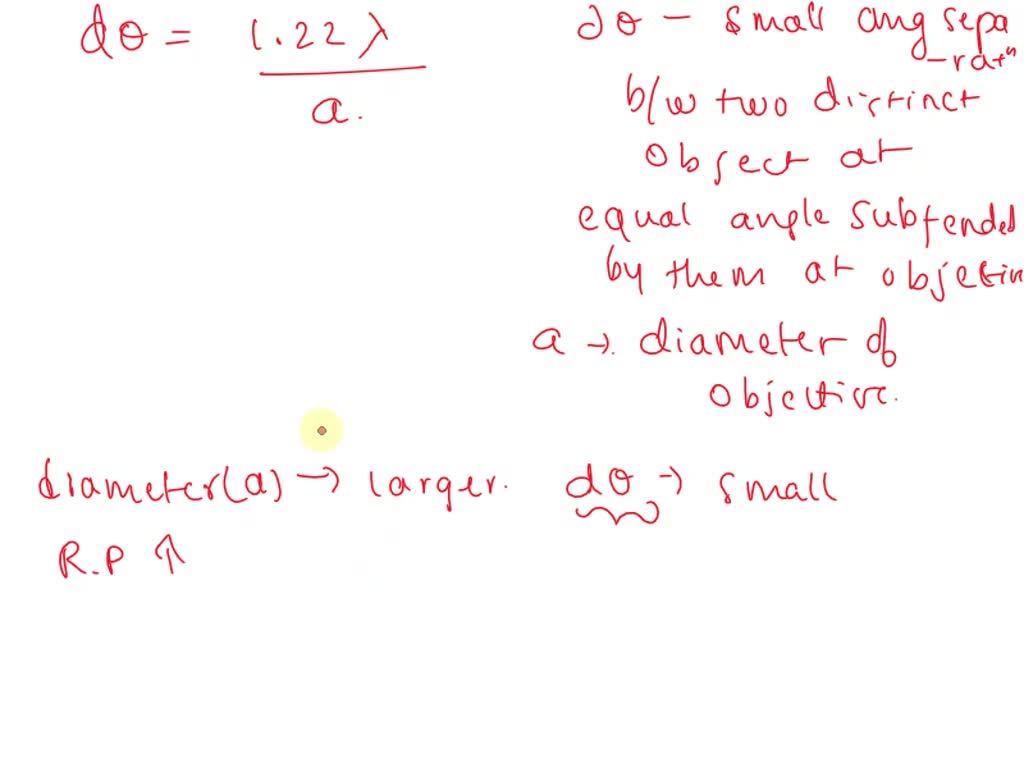 dθ = 1.22 λ
a.
dθ - small ang sepa
-ratⁿ
b/w two distinct
object at
equal angle subtended
by them at objectin
a → diameter of
objective.
diameter(a) → larger. dθ → small
R.P ↑